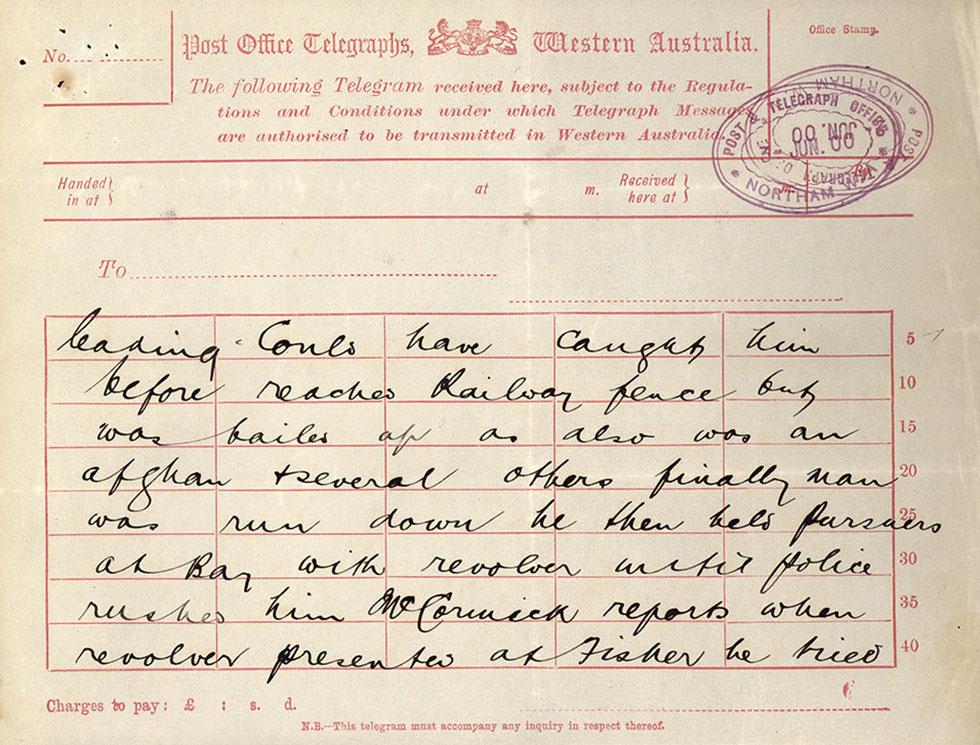 No....
Post Office Telegraphs, Western Australia.
Office Stamp.
The following Telegram received here, subject to the Regula-
tions and Conditions under which Telegraph Messages
are authorised to be transmitted in Western Australia.
POST & TELEGRAPH OFFICE
JUN. 00
NORTHAM W.A.
NORTHAM
POST
Handed in at } at m. Received here at }
To
leading Could have caught him 5
before reached Railway fence but 10
was bailed up as also was an 15
afghan + several others finally man 20
was run down he then held pursuers 25
at Bay with revolver until police 30
rushed him McCormick reports when 35
revolver presented at Fisher he tried 40
Charges to pay: £ : s. d.
N.B.—This telegram must accompany any inquiry in respect thereof.